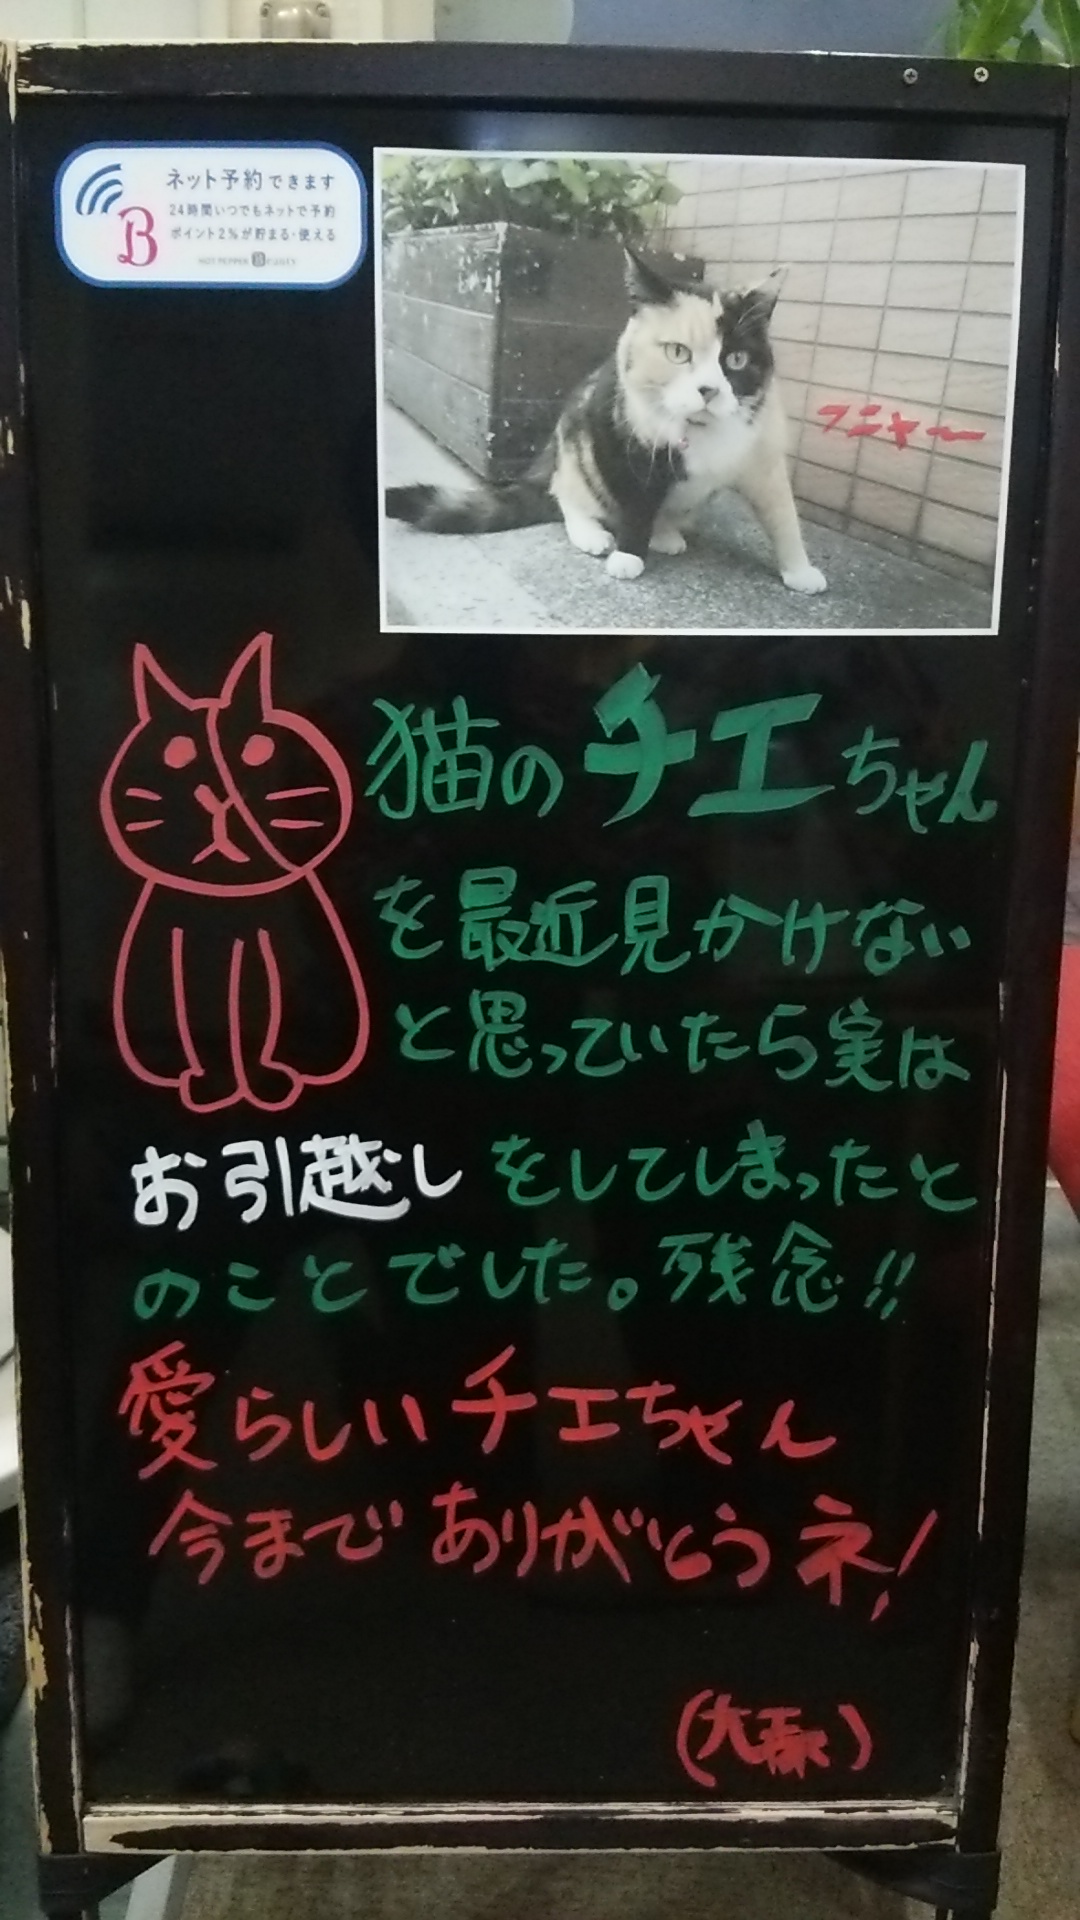 ネット予約できます
24時間いつでもネットで予約
ポイント2%が貯まる・使える
HOT PEPPER Beauty
フニャ〜
猫のチエちゃん
を最近見かけない
と思っていたら実は
お引越しをしてしまったと
のことでした。残念!!
愛らしいチエちゃん
今までありがとうネ!